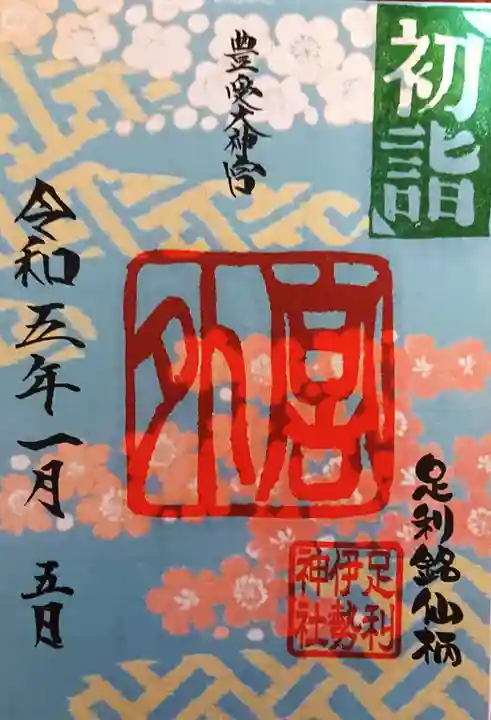 初詣
足利銘仙柄
豊受大神宮
外宮
足利
伊勢
神社
令和五年一月 五日